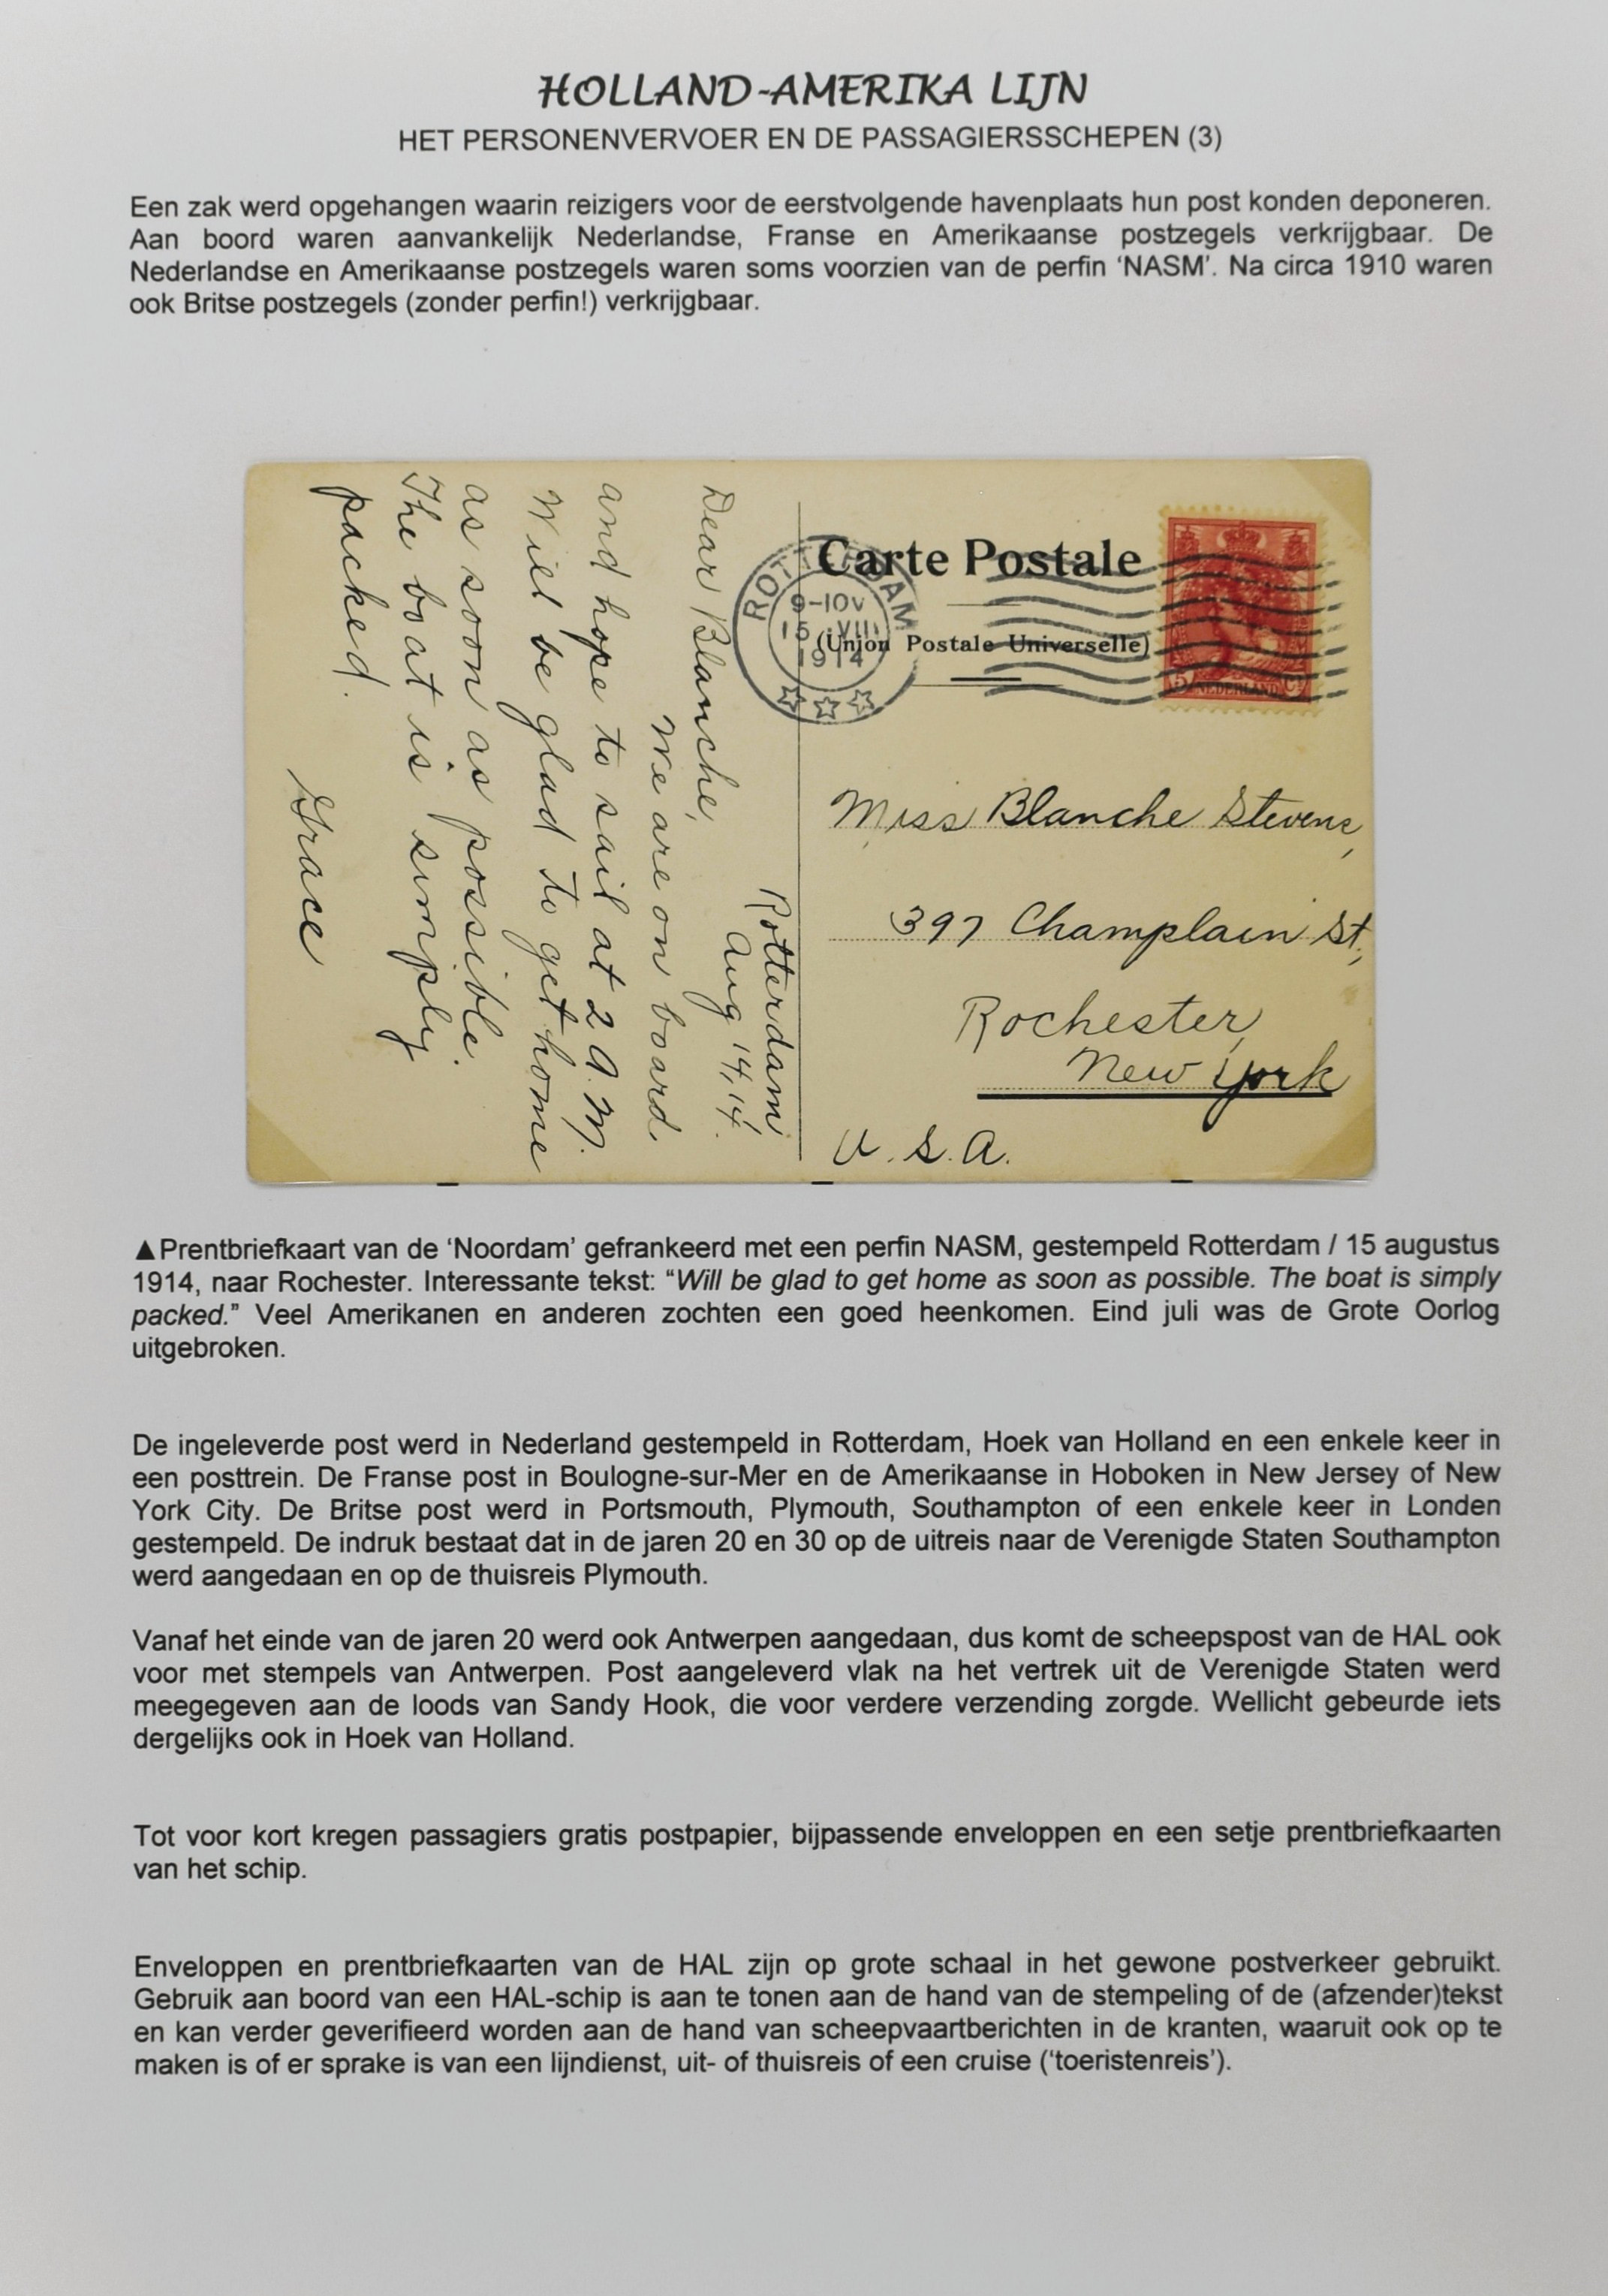 HOLLAND-AMERIKA LIJN
HET PERSONENVERVOER EN DE PASSAGIERSSCHEPEN (3)
Een zak werd opgehangen waarin reizigers voor de eerstvolgende havenplaats hun post konden deponeren.
Aan boord waren aanvankelijk Nederlandse, Franse en Amerikaanse postzegels verkrijgbaar. De
Nederlandse en Amerikaanse postzegels waren soms voorzien van de perfin ‘NASM’. Na circa 1910 waren
ook Britse postzegels (zonder perfin!) verkrijgbaar.
Rotterdam
Aug 14, 14.
Dear Blanche,
We are on board
and hope to sail at 2 A.M.
Will be glad to get home
as soon as possible.
The boat is simply
packed.
Grace
Carte Postale
(Union Postale Universelle)
ROTTERDAM
9-10V
15 VIII
1914
5 NEDERLAND Ct
Miss Blanche Stevens,
397 Champlain St.,
Rochester,
New York
U.S.A.
▲Prentbriefkaart van de ‘Noordam’ gefrankeerd met een perfin NASM, gestempeld Rotterdam / 15 augustus
1914, naar Rochester. Interessante tekst: “Will be glad to get home as soon as possible. The boat is simply
packed.” Veel Amerikanen en anderen zochten een goed heenkomen. Eind juli was de Grote Oorlog
uitgebroken.
De ingeleverde post werd in Nederland gestempeld in Rotterdam, Hoek van Holland en een enkele keer in
een posttrein. De Franse post in Boulogne-sur-Mer en de Amerikaanse in Hoboken in New Jersey of New
York City. De Britse post werd in Portsmouth, Plymouth, Southampton of een enkele keer in Londen
gestempeld. De indruk bestaat dat in de jaren 20 en 30 op de uitreis naar de Verenigde Staten Southampton
werd aangedaan en op de thuisreis Plymouth.
Vanaf het einde van de jaren 20 werd ook Antwerpen aangedaan, dus komt de scheepspost van de HAL ook
voor met stempels van Antwerpen. Post aangeleverd vlak na het vertrek uit de Verenigde Staten werd
meegegeven aan de loods van Sandy Hook, die voor verdere verzending zorgde. Wellicht gebeurde iets
dergelijks ook in Hoek van Holland.
Tot voor kort kregen passagiers gratis postpapier, bijpassende enveloppen en een setje prentbriefkaarten
van het schip.
Enveloppen en prentbriefkaarten van de HAL zijn op grote schaal in het gewone postverkeer gebruikt.
Gebruik aan boord van een HAL-schip is aan te tonen aan de hand van de stempeling of de (afzender)tekst
en kan verder geverifieerd worden aan de hand van scheepvaartberichten in de kranten, waaruit ook op te
maken is of er sprake is van een lijndienst, uit- of thuisreis of een cruise (‘toeristenreis’).